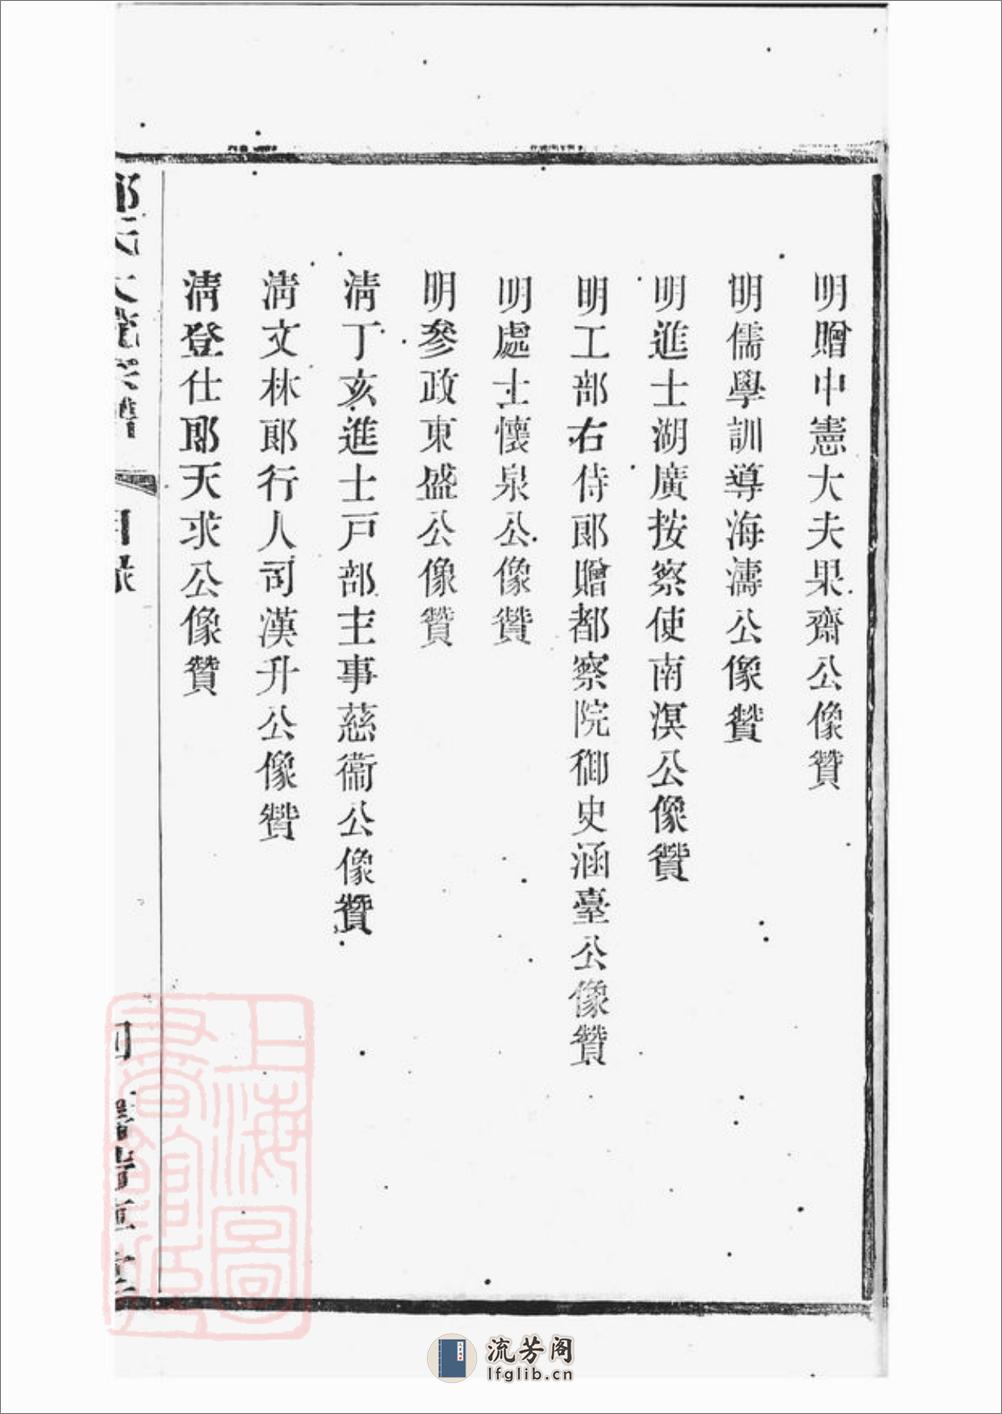 明贈中憲大夫果齋公像贊
明儒學訓導海濤公像贊
明進士湖廣按察使南溟公像贊
明工部右侍郎贈都察院御史涵臺公像贊
明處士懷泉公像贊
明參政東盛公像贊
清丁亥進士戸部主事慈衞公像贊
清文林郎行人司漢升公像贊
清登仕郎天求公像贊
目錄
上海圖
書館藏
流芳阁
lfglib.cn